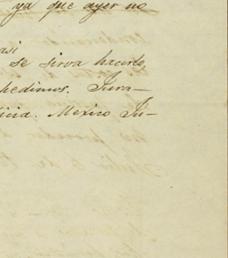 ya que ayer no
asi
se sirva hacerlo,
pedimos. Jura—
icia. Mexico Ju-